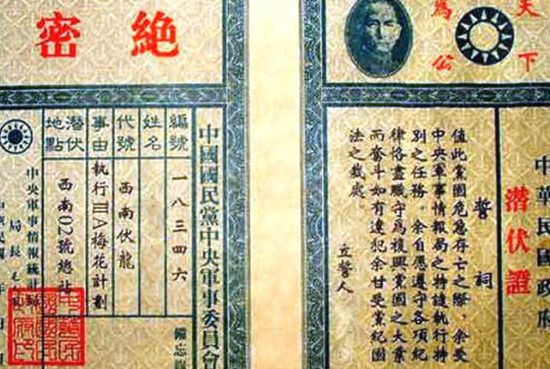 天下
為公
中華民國政府
潛伏證
誓詞
值此黨國危急存亡之際,余受
中央軍事情報局之持遣執行持
別之任務。余自愿遵守各項紀
律恪盡職守爲複興黨国之大業
而奮斗如有違犯余甘受黨紀國
法之裁处
立誓人
絕密
中國國民黨中央軍事委員會
備忘
編號 一八三四六
姓名
代號 西南伏龍
事由 執行ⅢA梅花計劃
潛伏地點 西南02號總站
中央軍事情報統計局
局長
中華民國